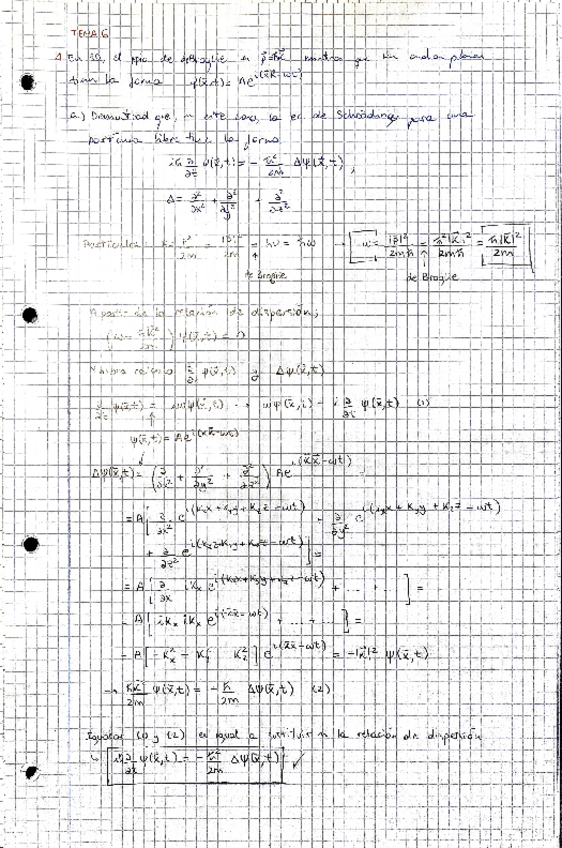 TEMA 6
1 En 3D, el ppio. de de Broglie es p⃗=ħk⃗ mientras que las ondas planas
tienen la forma ψ(x⃗,t)= Ae^{i(x⃗k⃗-ωt)}
a) Demostrad que, en este caso, la ec. de Schrödinger para una
partícula libre tiene la forma
iħ ∂/∂t ψ(x⃗,t) = - ħ²/2m Δψ(x⃗,t),
Δ= ∂²/∂x² + ∂²/∂y² + ∂²/∂z²
Partículas = p²/2m = |p⃗|²/2m = hν = ħω → ω= |p⃗|²/2mħ = ħ²|k⃗|²/2mħ = ħ|k⃗|²/2m
de Broglie de Broglie
A partir de la relación de dispersión;
(ω - ħk⃗²/2m) ψ(x⃗,t) = 0
calculo ∂/∂t ψ(x⃗,t) y Δψ(x⃗,t)
∂/∂t ψ(x⃗,t) = -iωψ(x⃗,t) → ωψ(x⃗,t) = i ∂/∂t ψ(x⃗,t) (1)
ψ(x⃗,t)= Ae^{i(x⃗k⃗-ωt)}
Δψ(x⃗,t)= (∂²/∂x² + ∂²/∂y² + ∂²/∂z²) Ae^{i(k⃗x⃗-ωt)}
= A[∂²/∂x² e^{i(kₓx+k_yy+k_zz-ωt)} + ∂²/∂y² e^{i(kₓx+k_yy+k_zz-ωt)}
+ ∂²/∂z² e^{i(kₓx+k_yy+k_zz-ωt)}] =
= A[∂/∂x ikₓ e^{i(kₓx+k_yy+k_zz-ωt)} + ... + ...] =
= A[ikₓ ikₓ e^{i(k⃗x⃗-ωt)} + ... + ...] =
= A[-kₓ² - k_y² - k_z²] e^{i(k⃗x⃗-ωt)} = -|k⃗|² ψ(x⃗,t)
→ ħk⃗²/2m ψ(x⃗,t) = - ħ/2m Δψ(x⃗,t) (2)
Igualar (1) y (2) es igual a sustituir en la relación de dispersión
↳ iħ ∂/∂t ψ(x⃗,t) = - ħ²/2m Δψ(x⃗,t) ✓